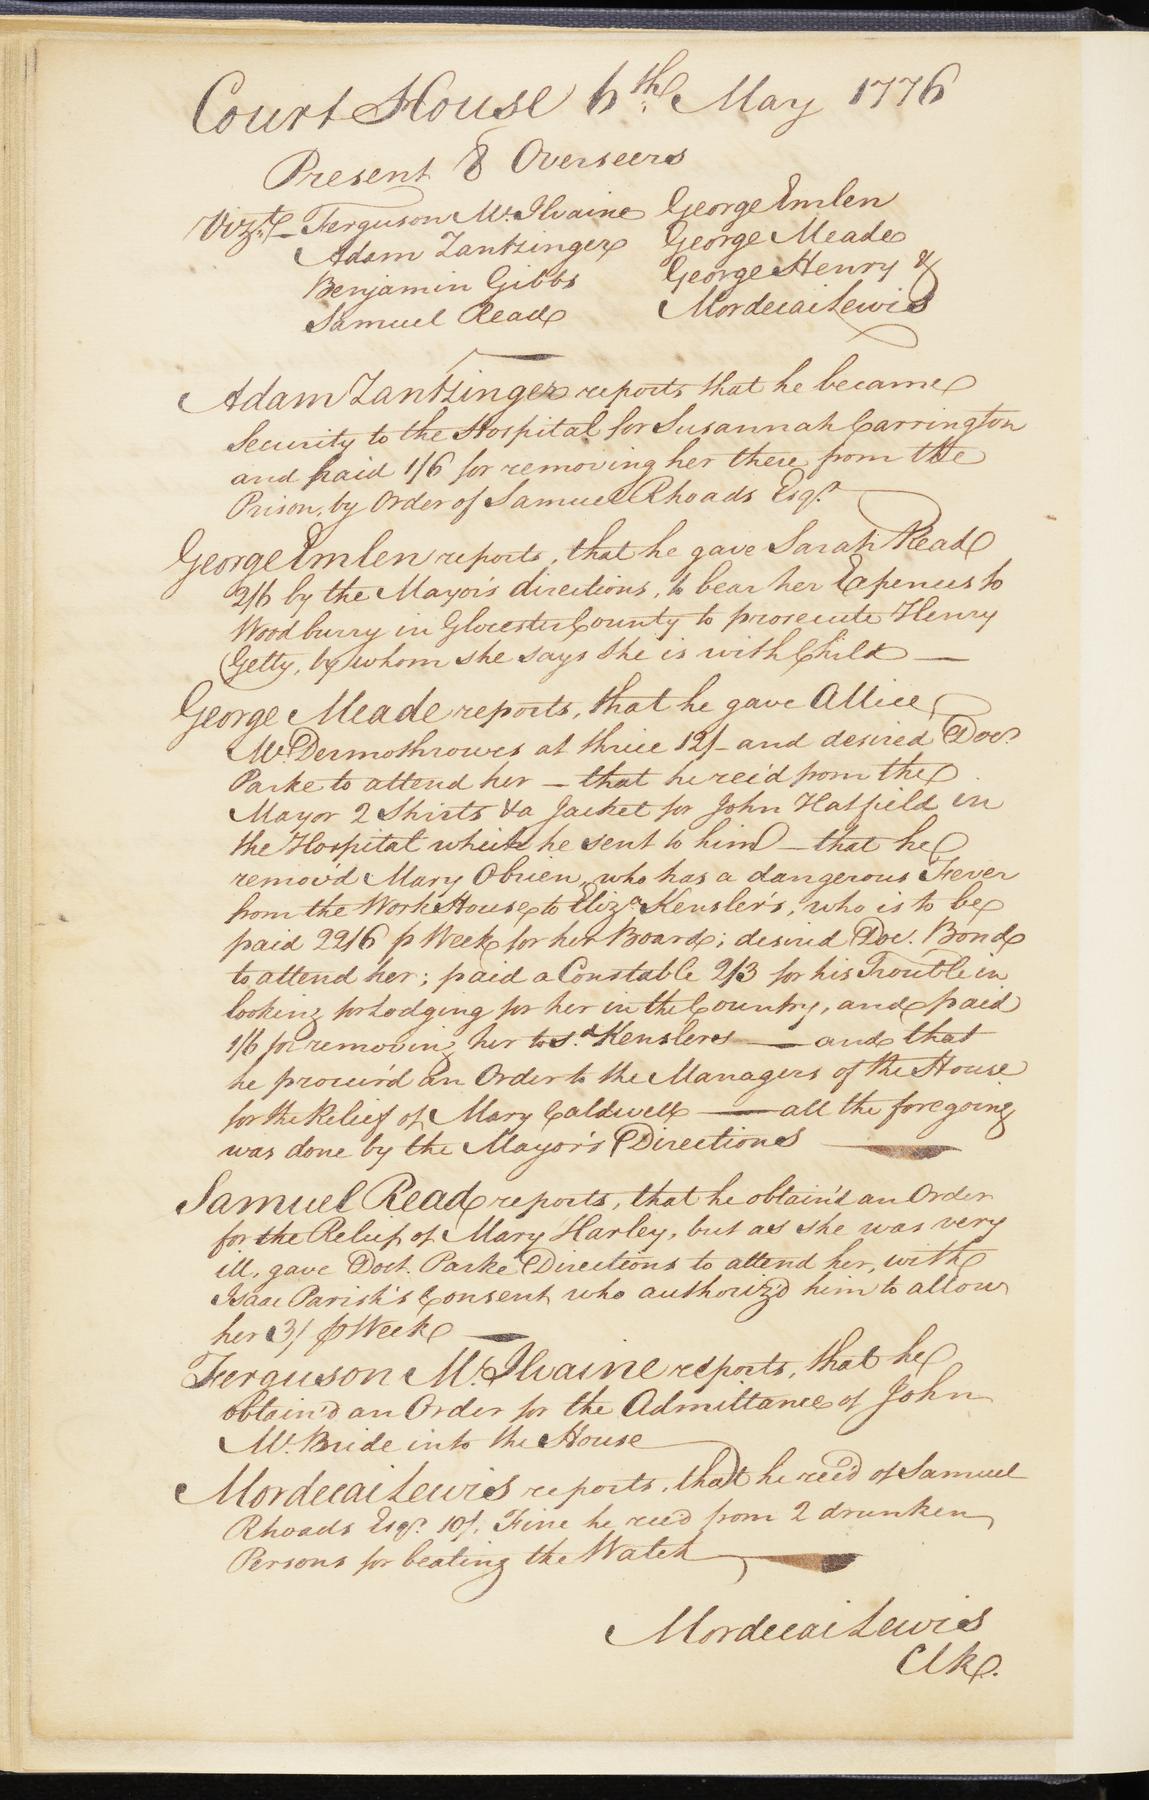 Court House 6th. May 1776
Present 8 Overseers
Vizt. Ferguson Mc.Ilvaine George Emlen
Adam Zantzinger George Meade
Benjamin Gibbs George Henry &
Samuel Read Mordecai Lewis
Adam Zantzinger reports that he became
Security to the Hospital for Susannah Carrington
and paid 1/6 for removing her there from the
Prison, by Order of Samuel Rhoads Esqr.
George Emlen reports, that he gave Sarah Read
2/6 by the Mayor's directions, to bear her Expences to
Woodburry in Glocester County to prosecute Henry
Getty, by whom she says she is with Child —
George Meade reports, that he gave Allice
Mc.Dermothrowes at thrice 12/- and desired Docr.
Parke to attend her — that he rec'd from the
Mayor 2 Shirts & a Jacket for John Hatfield in
the Hospital which he sent to him — that he
remov'd Mary Obrien, who has a dangerous Fever
from the Work House to Eliza. Kensler's, who is to be
paid 22/6 p Week for her Board; desired Doc. Bond
to attend her; paid a Constable 2/3 for his Trouble in
looking for Lodging for her in the Country, and paid
1/6 for removing her to sd. Kenslers — and that
he procur'd an Order to the Managers of the House
for the Relief of Mary Caldwell — all the foregoing
was done by the Mayor's Directions
Samuel Read reports, that he obtain'd an Order
for the Relief of Mary Harley, but as she was very
ill, gave Doct. Parke Directions to attend her, with
Isaac Parish's Consent, who authoriz'd him to allow
her 3/ p Week —
Ferguson Mc.Ilvaine reports, that he
obtain'd an Order for the Admittance of John
Mc.Bride into the House
Mordecai Lewis reports, that he rec'd of Samuel
Rhoads Esqr. 10/. Fine he rec'd from 2 drunken
Persons for beating the Watch
Mordecai Lewis
Clk.